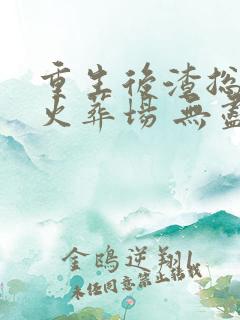 重生後渣
火葬場 無盡
金鴟逆翔
未經同意禁止轉載